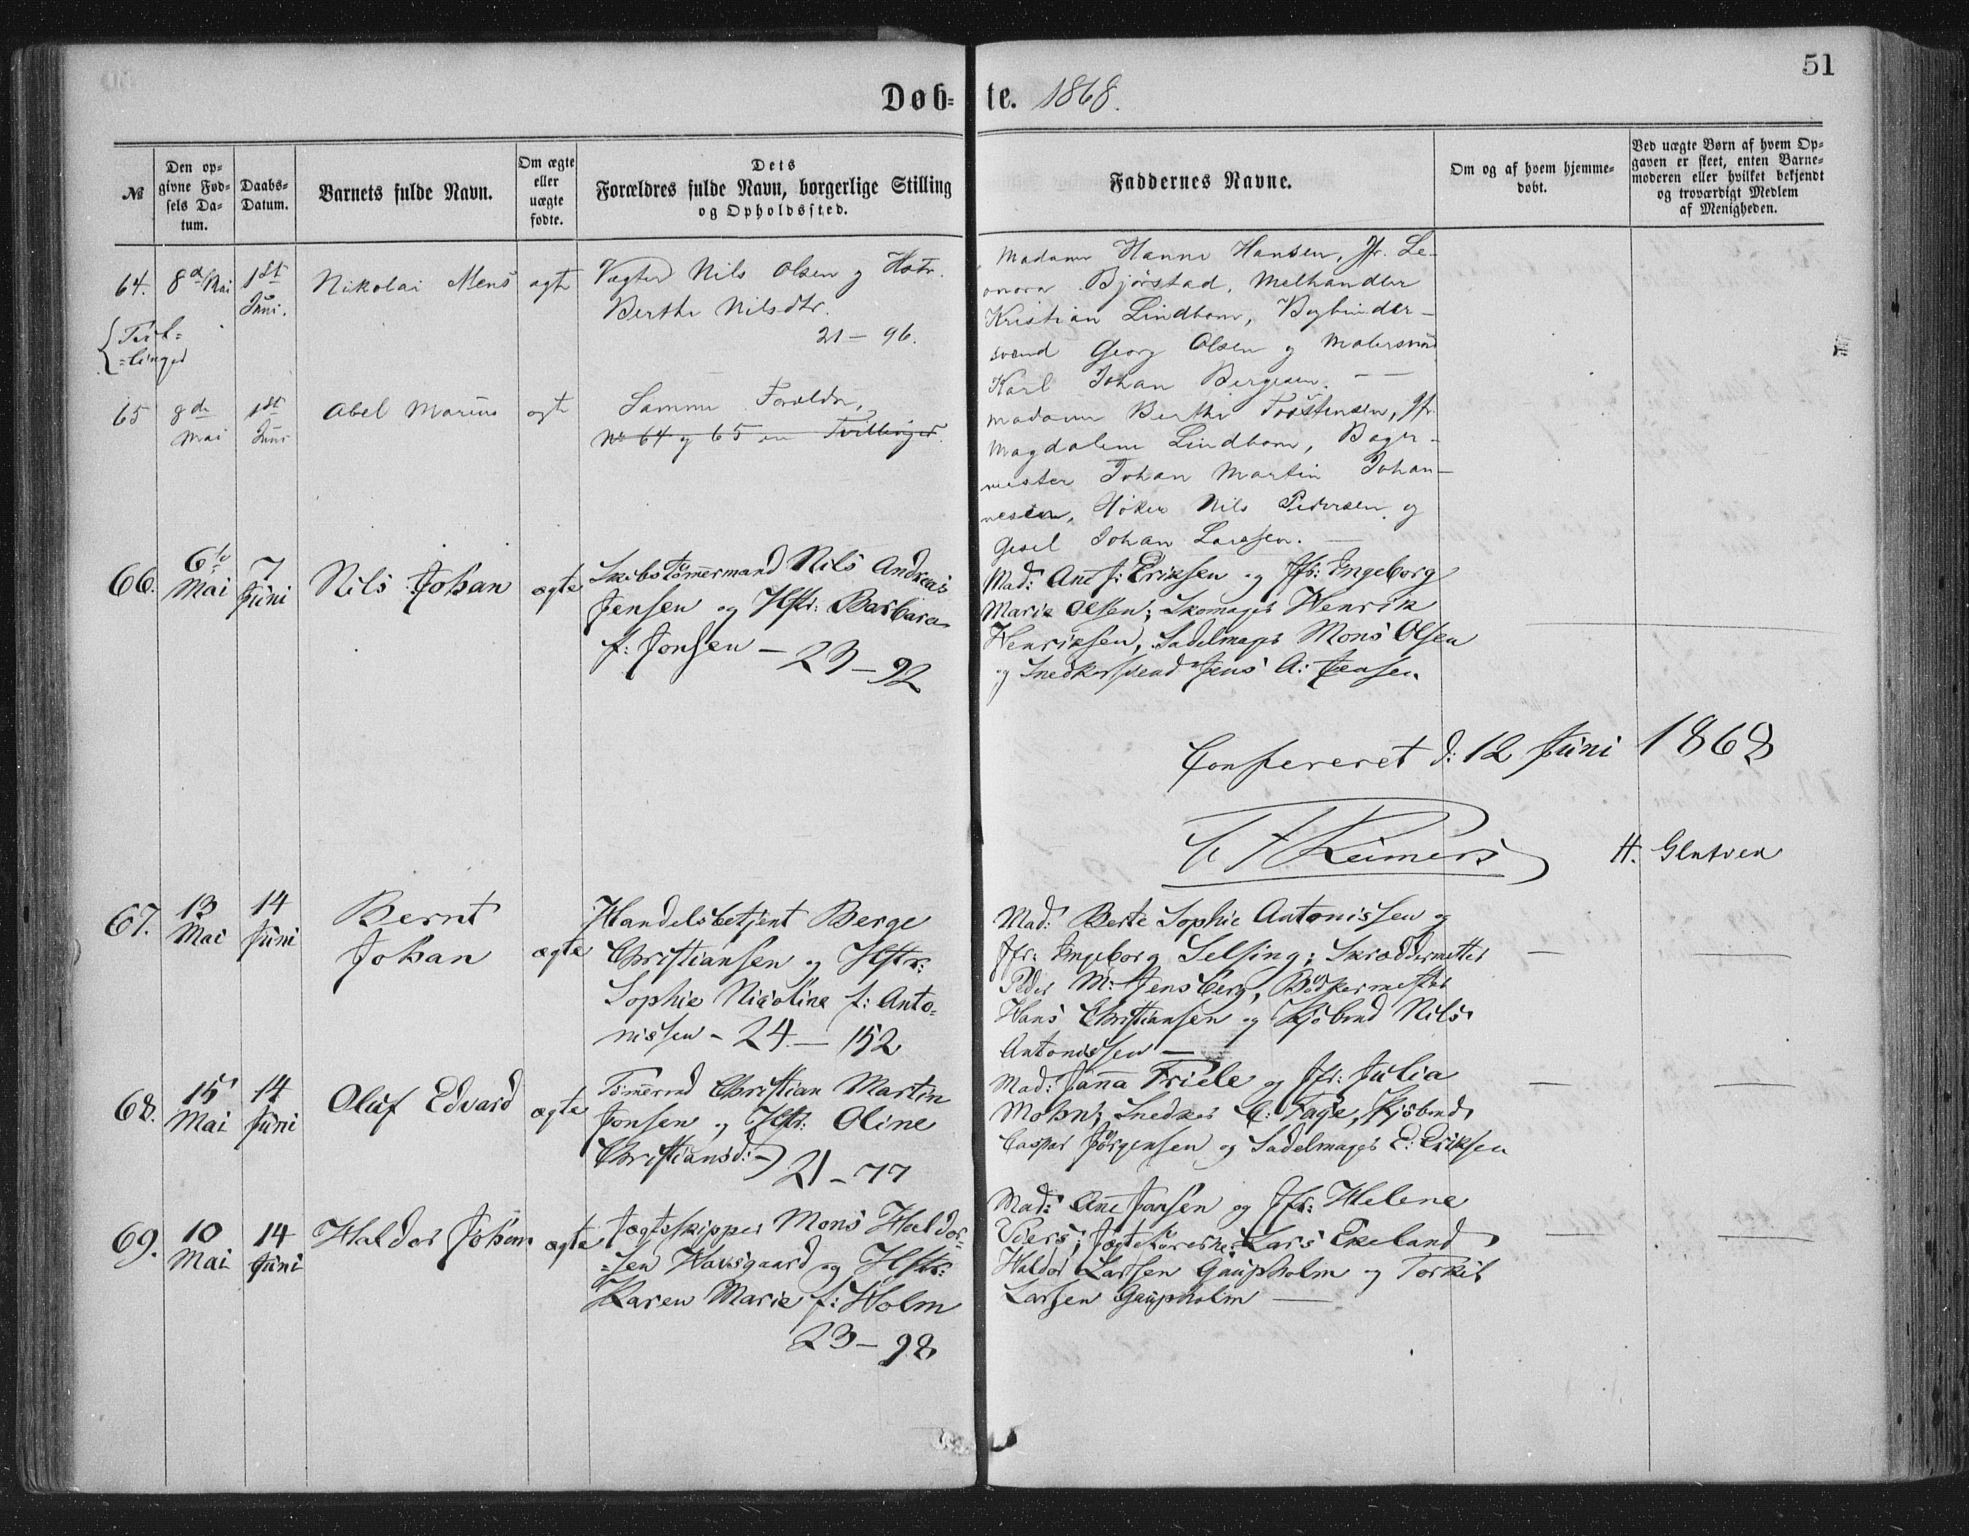 51
Døb- te. 1868.
№
Den op-
givne Fød-
sels Da-
tum.
Daabs-
Datum.
Barnets fulde Navn.
Om ægte
eller
uægte
fødte.
Dets
Forældres fulde Navn, borgerlige Stilling
og Opholdssted.
Faddernes Navne.
Om og af hvem hjemme-
døbt.
Ved uægte Børn af hvem Op-
gaven er skeet, enten Barne-
moderen eller hvilket bekjendt
og troværdigt Medlem
af Menigheden.
64. 8de Mai 1st Juni. Nikolai Mens ægte
Vægter Nils Olsen og Hstr.
Berthe Nilsdtr.
21 – 96.
Madame Hanne Hansen, Jfr. Le-
onora Bjørstad, Melhandler
Kristian Lindbom, Bogbinder-
svend Georg Olsen og Malersvend
Karl Johan Bergesen.
65 8de Mai 1st Juni Abel Marius ægte
Samme Forældre,
No 64 og 65 ere Tvillinger.
Madame Berthe Torstensen, Jfr.
Magdalene Lindbom, Bager-
mester Johan Martin Johan-
nesen, Høker Nils Pedersen og
Gesel Johan Larssen.
66. 6te Mai 7 Juni Nils Johan ægte
Skibstømmermand Nils Andreas
Jensen og Hstr: Barbara
f: Jonsen – 23 – 92
Mad: Ane J: Eriksen og Jfr: Ingeborg
Marie Olsen; Skomager Henrik
Henriksen, Sadelmager Mons Olsen
og Snedkersvend Jens A: Jensen
Confereret d: 12 Juni 1868
Reimers
H.
67. 13 Mai 14 Juni Bernt
Johan ægte
Handelsbetjent Berge
Christiansen og Hstr:
Sophie Nicoline f: Anto-
nissen – 24 – 152
Mad: Berte Sophie Antonissen og
Jfr: Ingeborg Selsing; Skræddermester
Peder M: Jensberg, Bødkermester
Hans Christiansen og Kjøbmd Nils
Antonissen –
68. 15 Mai 14 Juni Oluf Edvard ægte
Tømmermd Christian Martin
Jonsen og Hstr: Oline
Christiansd: –
21 – 77
Mad: Janna Friele og Jfr: Julia
Mohn; Snedker C: Faye, Kjøbmd
Caspar Jørgensen og Sadelmager E: Eriksen
69. 10 Mai 14 Juni Haldor Johan ægte
Jægteskipper Mons Haldor-
sen Havsgaard og Hstr:
Karen Marie f: Holm
23 – 98
Mad: Ane Jansen og Jfr: Helene
Piers; Jægteførerne Lars Ekeland
Haldor Larsen Gaupholm og Torkil
Larsen Gaupholm